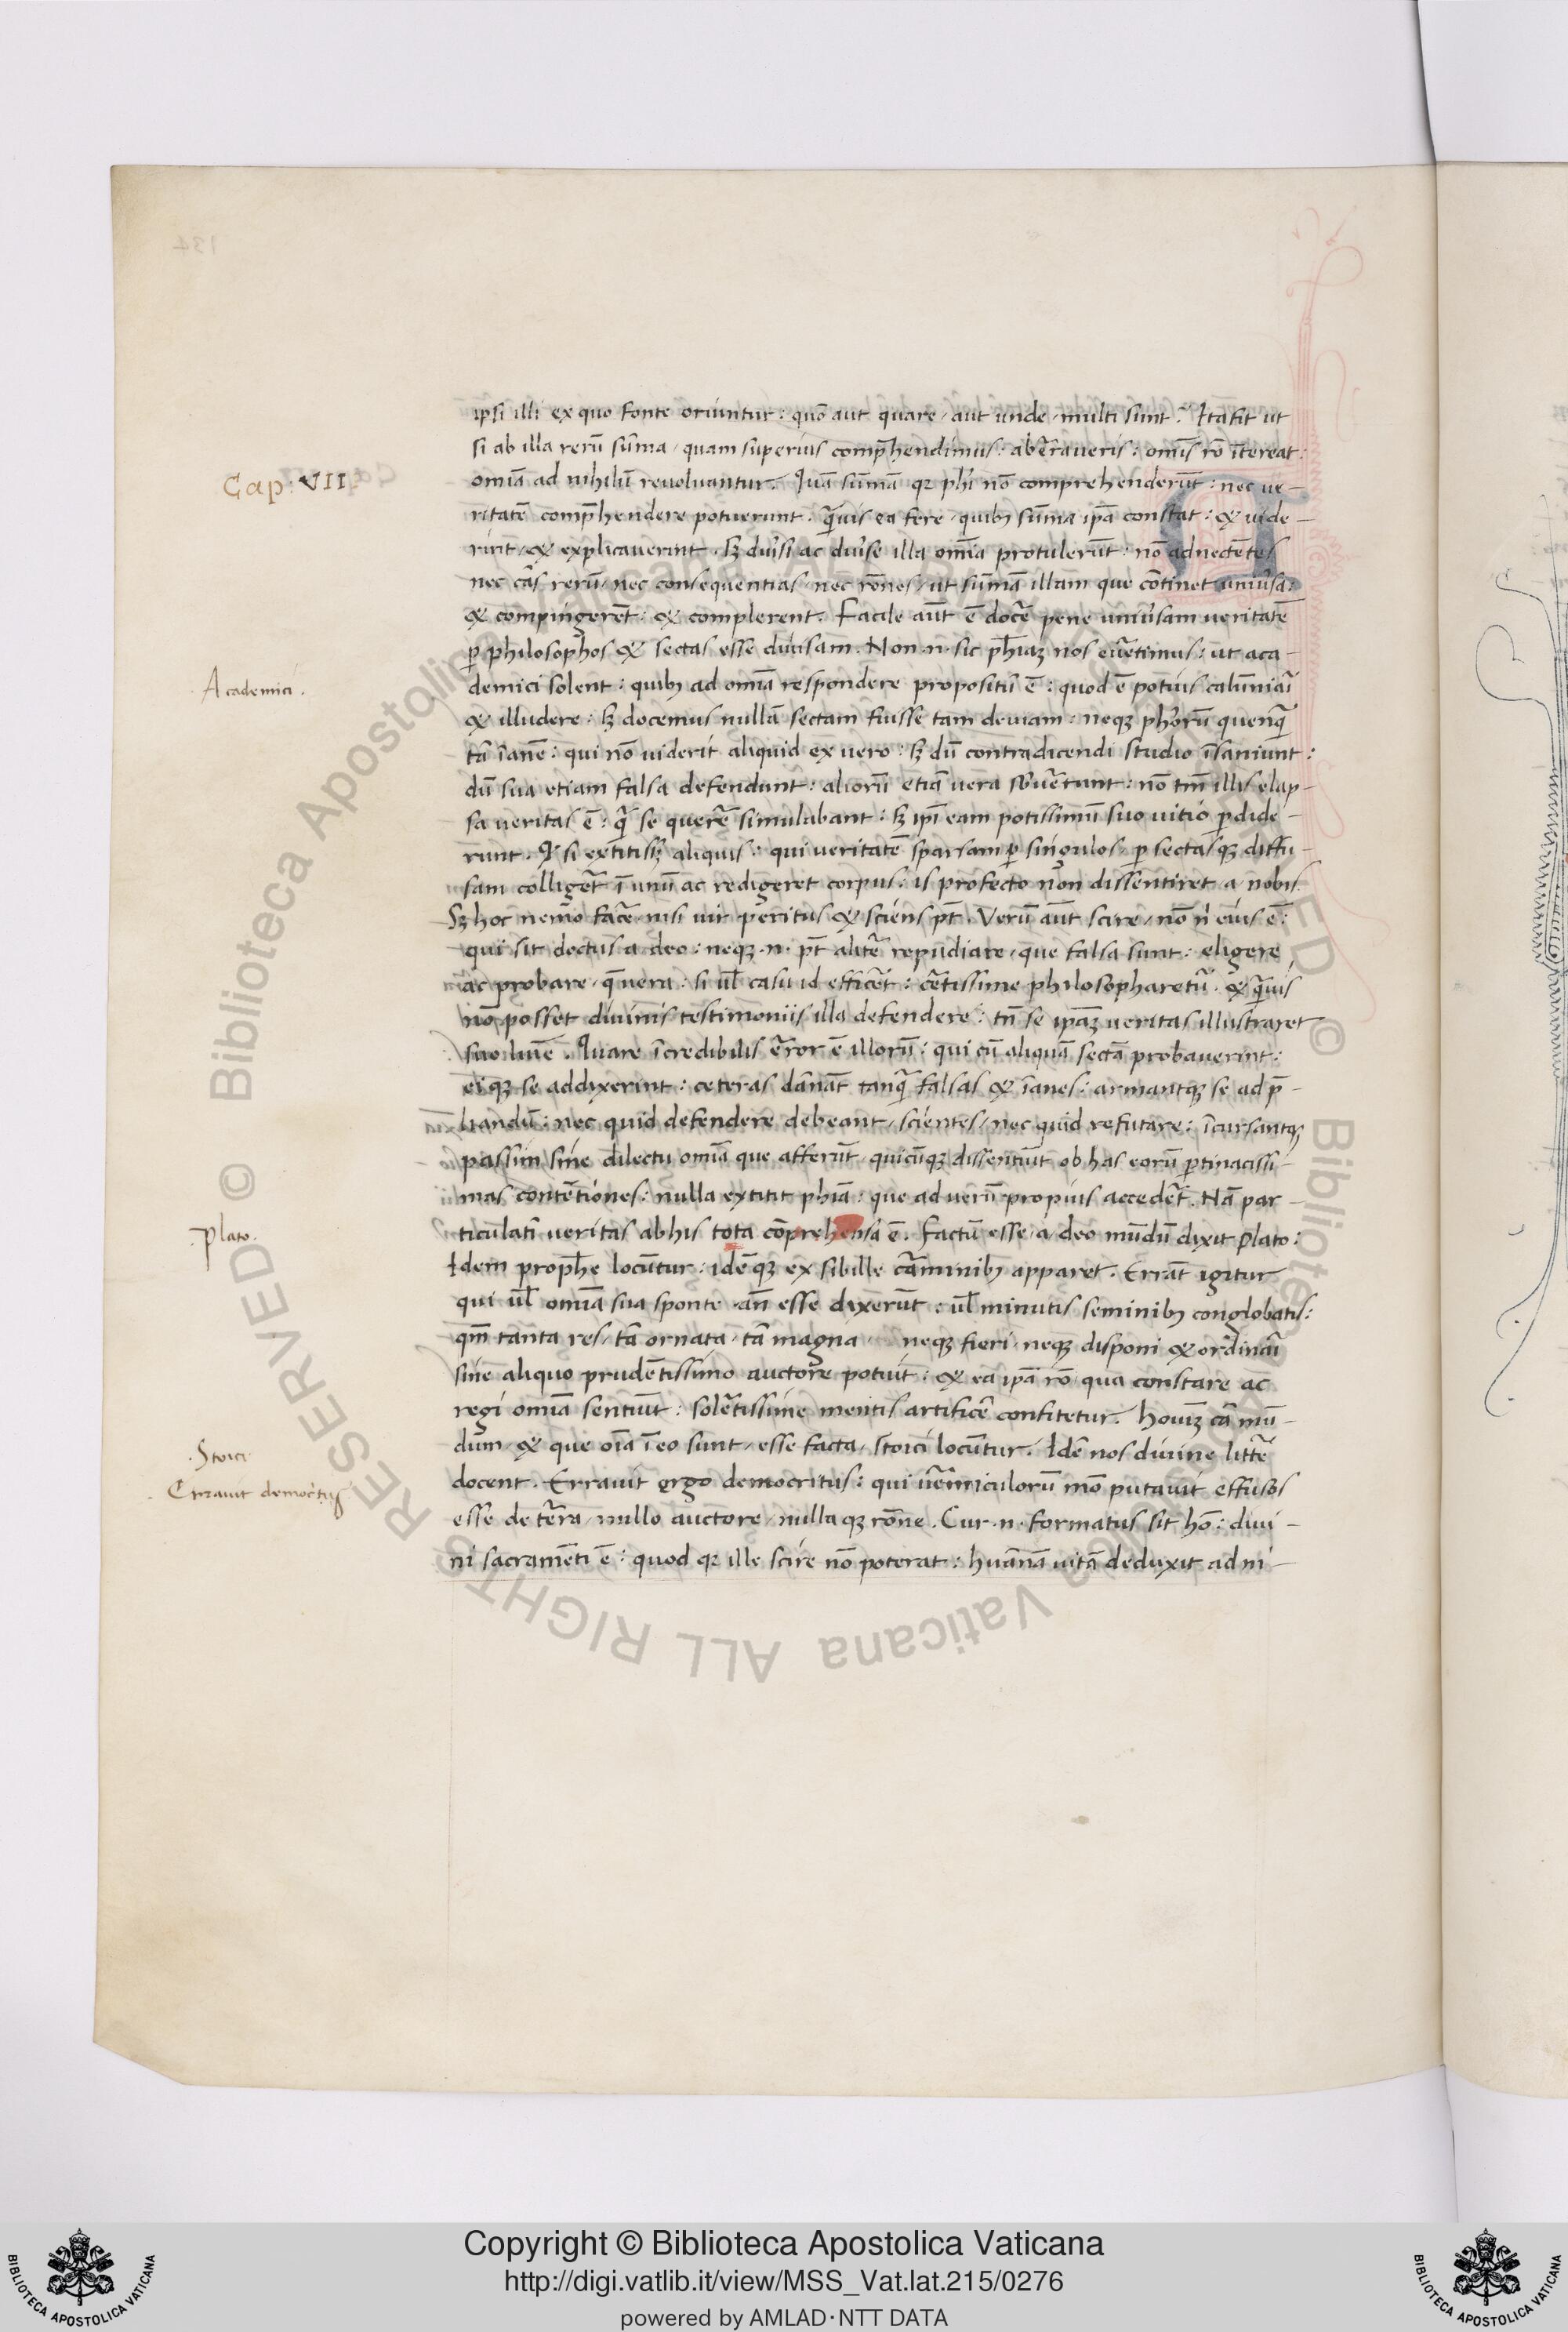 ipsi illi ex quo fonte oriuntur: quō aut quare, aut unde, multi sunt. Ita fit ut
si ab illa rerū sūma, quam superius comp̄hendimus: aberraveris: omīs rō ītereat:
Cap. VII
omīa ad nihilū revolvantur. Quā sūmā qz phī nō comprehenderūt: nec ve-
ritatē comp̄hendere potuerunt. q̄vis ea fere, quibz sūma ipā constat: & vide-
rint, & explicaverint. Sz dvīsi ac dvīse illa omīa protulerūt: nō adnectētes
nec cās rerū, nec consequentias, nec rōnes, ut sūmā illam que cōtinet univ̄sa:
& compingerēt: & complerent. Facile aūt ē docē pene univ̄sam veritatē
p̄ philosophos & sectas esse divisam. Non .n. sic ph̄iaz nos ev̄timus: ut aca-
Academici.
demici solent: quibz ad omīa respondere propositū ē: quod ē potius calūniāī
& illudere: Sz docemus nullā sectam fuisse tam deviam: neqz ph̄orū quenq̄
tā īanē: qui nō viderit aliquid ex vero: Sz dū contradicendi studio īsaniunt:
dū sua etiam falsa defendunt: aliorū etiā vera sbv̄tunt: nō tm̄ illis elap-
sa veritas ē: q̄ se querē simulabant: Sz ipī eam potissimū suo vitio p̄dide-
runt. Qd̄ si extitissz aliquis: qui veritatē sparsam p̄ singulos, p̄ sectasqz diffu-
sam colligēt ī unū ac redigeret corpus: is profecto non dissentiret a nobis.
Sz hoc nemo facē, nisi vir peritus & sciens pt̄. Verū aūt scire, nō n̄ eius ē:
qui sit doctus a deo: neqz .n. pt̄ alitē repudiare, que falsa sunt: eligere
ac probare, q̄ vera: si ūl casu id efficēt: cētissime philosopharetū. & q̄vis
nō posset divinis testimoniis illa defendere: tn̄ se ipāz veritas illustraret
suo lumē. Quare īcredibilis ēror ē illorū: qui cū aliquā sectā probaverint:
eiqz se addixerint: ceteras dānāt tanq̄ falsas & īanes: armantqz se ad p̄-
liandū: nec quid defendere debeant, scientes, nec quid refutare: īcursantqz
passim sine dilectu omīa que afferūt, quicūqz dissentiūt ob has eorū p̄tinacissi-
mas contētiones: nulla extitit phiā: que ad verū propius accedēt. Nā par-
Plato.
ticulatī veritas ab his tota cōprehensa ē. Factū esse a deo mūdū dixit Plato:
Idem proph̄e locūtur: idēqz ex sibille cāminibz apparet. Errāt igitur
qui ūl omīa sua sponte an̄ esse dixerūt: ūl minutis seminibz conglobatis:
qm̄ tanta res, tā ornata, tā magna neqz fieri, neqz disponi & ordināī
sine aliquo prudētissimo auctore potuit: & ea ipā rō, qua constare ac
regi omīa sentiūt: solētissime mentis artificē confitetur. Hoīuz cā mū-
Stoici.
dum, & que oīa ī eo sunt, esse facta, stoici locūtur. Idē nos divine littē
Erravit democritus
docent. Erravit ergo democritus: qui vērniculorū mō putavit effusos
esse de tēra, nullo auctore, nullaqz rōne. Cur .n. formatus sit hō: divi-
ni sacramēti ē: quod qz ille scire nō poterat: huānā vitā deduxit ad ni-
Copyright © Biblioteca Apostolica Vaticana
http://digi.vatlib.it/view/MSS_Vat.lat.215/0276
powered by AMLAD·NTT DATA